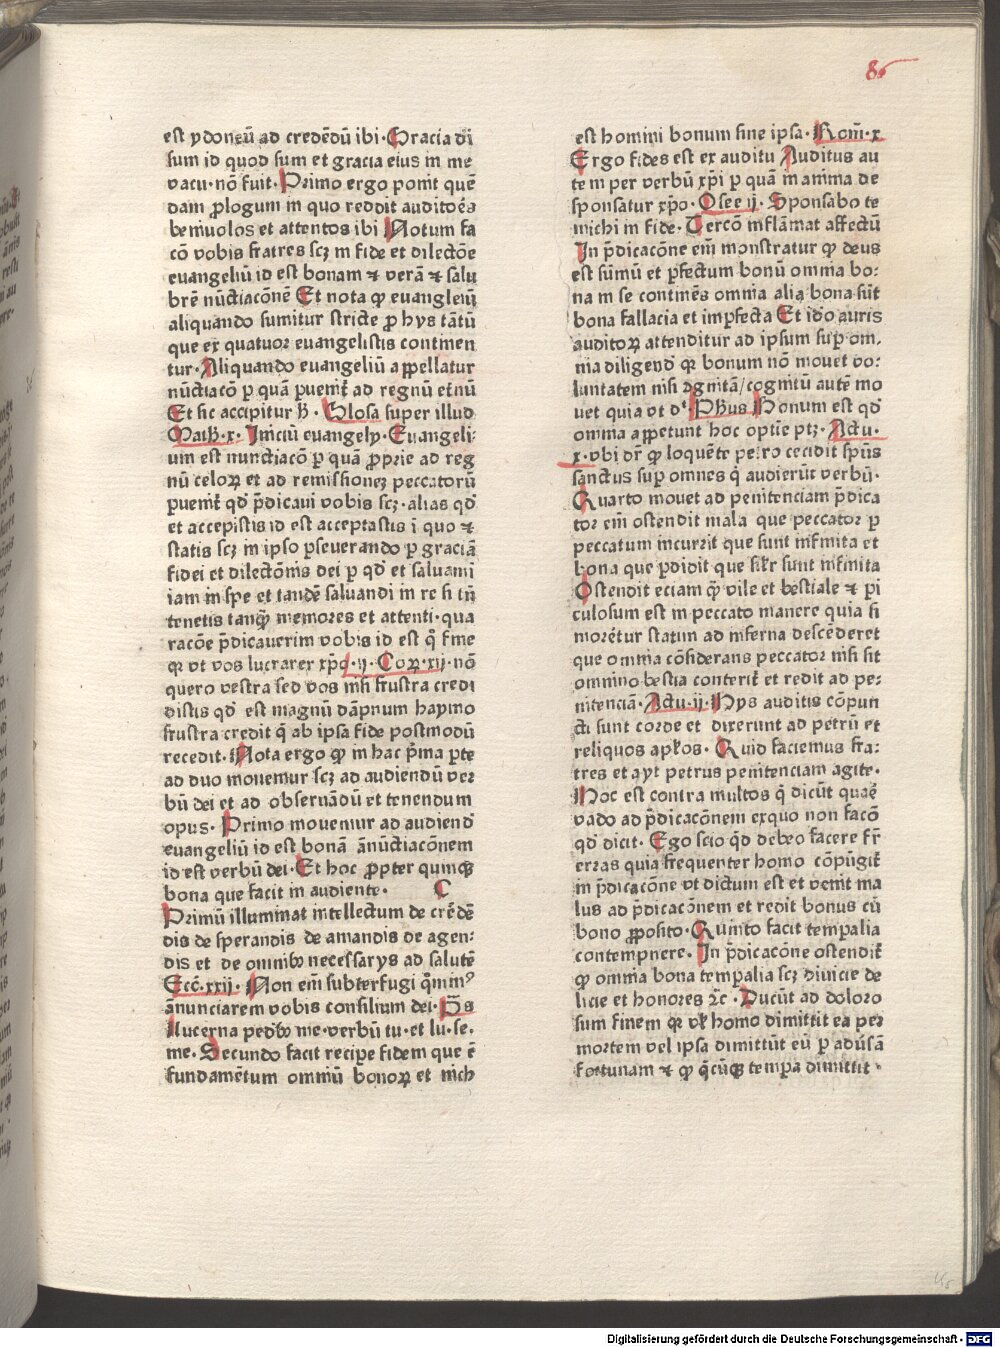 86
est ydoneū ad credēdū ibi · Gracia di
sum id quod sum et gracia eius in me
vacu· nō fuit · Primo ergo ponit quē
dam prologum in quo reddit auditoēs
beniuolos et attentos ibi Notum fa
cō vobis fratres scꝫ in fide et dilectōe
euangeliū id est bonam ⁊ verā ⁊ salu
brē nūctiacōnē Et nota ꝙ euangleiū
aliquando sumitur stricte ꝓ hys tātū
que ex quatuor euangelistis continen
tur · Aliquando euangeliū appellatur
nūctiacō ꝑ quā ꝑuenit̄ ad regnū etnū
Et sic accipitur h̄ · Glosa super illud
Math · x · Iniciū euangely · Euangeli:
um est nunctiacō ꝑ quā ꝓprie ad reg
nū celoꝝ et ad remissioneꝫ peccatorū
ꝑuenit̄ qd̄ p̄dicaui vobis scꝫ · alias qd̄
et accepistis id est acceptastis ī quo ⁊
statis scꝫ in ipso ꝑseuerando ꝑ graciā
fidei et dilectōnis dei ꝑ qd̄ et saluami
iam in spe et tandē saluandi in re si tn̄
tenetis tanꝙ̄ memores et attenti · qua
racōe p̄dicauerim vobis id est q̄ firme
ꝙ vt vos lucrarer xp̄o · ij · Coꝝ · xij · nō
quero vestra sed vos nisi frustra credi
distis qd̄ est magnū dāpnum haymo
frustra credit q̄ ab ipsa fide postmodū
recedit · Nota ergo ꝙ in hac p̄ma ꝑte
ad duo mouemur scꝫ ad audiendū ver
bū dei et ad obseruādū et tenendum
opus · Primo mouemur ad audiend̄
euangeliū id est bonā ānūctiacōnem
id est verbū dei · Et hoc ꝓpter quinqꝫ
bona que facit in audiente · C
Primū illuminat intellectum de cr̄edē
dis de sperandis de amandis de agen:
dis et de omnibꝫ necessarys ad salutē
Ecc̄ · xxij · Non em̄ subterfugi q̄minꝰ
ānunciarem vobis consilium dei · P̄s
Lucerna pedibꝫ me · verbū tu · et lu · se ·
me · Secundo facit recipe fidem que ē
fundamētum omniū bonoꝝ et nich
est homini bonum sine ipsa · Rom̄ · x
Ergo fides est ex auditu Auditus au
te in per verbū xp̄i ꝑ quā in anima de
sponsatur xp̄o · Osee ij · Sponsabo te
michi in fide · Tercō inflāmat affectū
In p̄dicacōne em̄ monstratur ꝙ deus
est sūmū et ꝑfectum bonū omnia bo:
na in se continēs omnia alia bona sūt
bona fallacia et imꝑfecta Et idō auris
auditoꝝ attenditur ad ipsum suꝑ om.
nia diligend̄ ꝙ bonum nō mouet vo:
luntatem nisi ꝯgnitā / cognitū autē mo
uet quia vt d' Ph̄us Bonum est qd̄
omnia appetunt hoc optīe ptꝫ · Actu ·
x · vbi dr̄ ꝙ loquēte petro cecidit sp̄ūs
sanctus suꝑ omnes q̄ audierūt verbū ·
Quarto mouet ad penitenciam p̄dica
tor em̄ ostendit mala que peccator ꝑ
peccatum incurrit que sunt infinita et
bona que ꝑdidit que sil̄r sunt infinita
Ostendit eciam ꝙ̄ vile et bestiale ⁊ ꝑi
culosum est in peccato manere quia si
morētur statim ad inferna descēderet
que omnia cōsiderans peccator nisi sit
omnino bestia conterit̄ et redit ad pe:
nitenciā · Actu · ij · Hys auditis cōpun
cti sunt corde et dixerunt ad petrū et
reliquos apl̄os · Quid faciemus fra:
tres et ayt petrus penitenciam agite ·
Hoc est contra multos q̄ dicūt quare
vado ad p̄dicacōnem exquo non facō
qd̄ dicit · Ego scio qd̄ debeo facere fr̄
erras quia frequenter homo cōpūgit̄
in p̄dicacōne vt dictum est et venit ma
lus ad p̄dicacōnem et redit bonus cū
bono ꝓposito · Quinto facit temꝑalia
contempnere · In p̄dicacōne ostendit̄
ꝙ omnia bona temꝑalia scꝫ diuicie de
licie et honores ⁊c̄ · Ducūt ad doloro
sum finem ꝙ vl̄ homo dimittit ea per
mortem vel ipsa dimittūt eū ꝑ adūsā
fortunam ⁊ ꝙ q̄cūqꝫ temꝑa dimittit ·
Digitalisierung gefördert durch die Deutsche Forschungsgemeinschaft - DFG